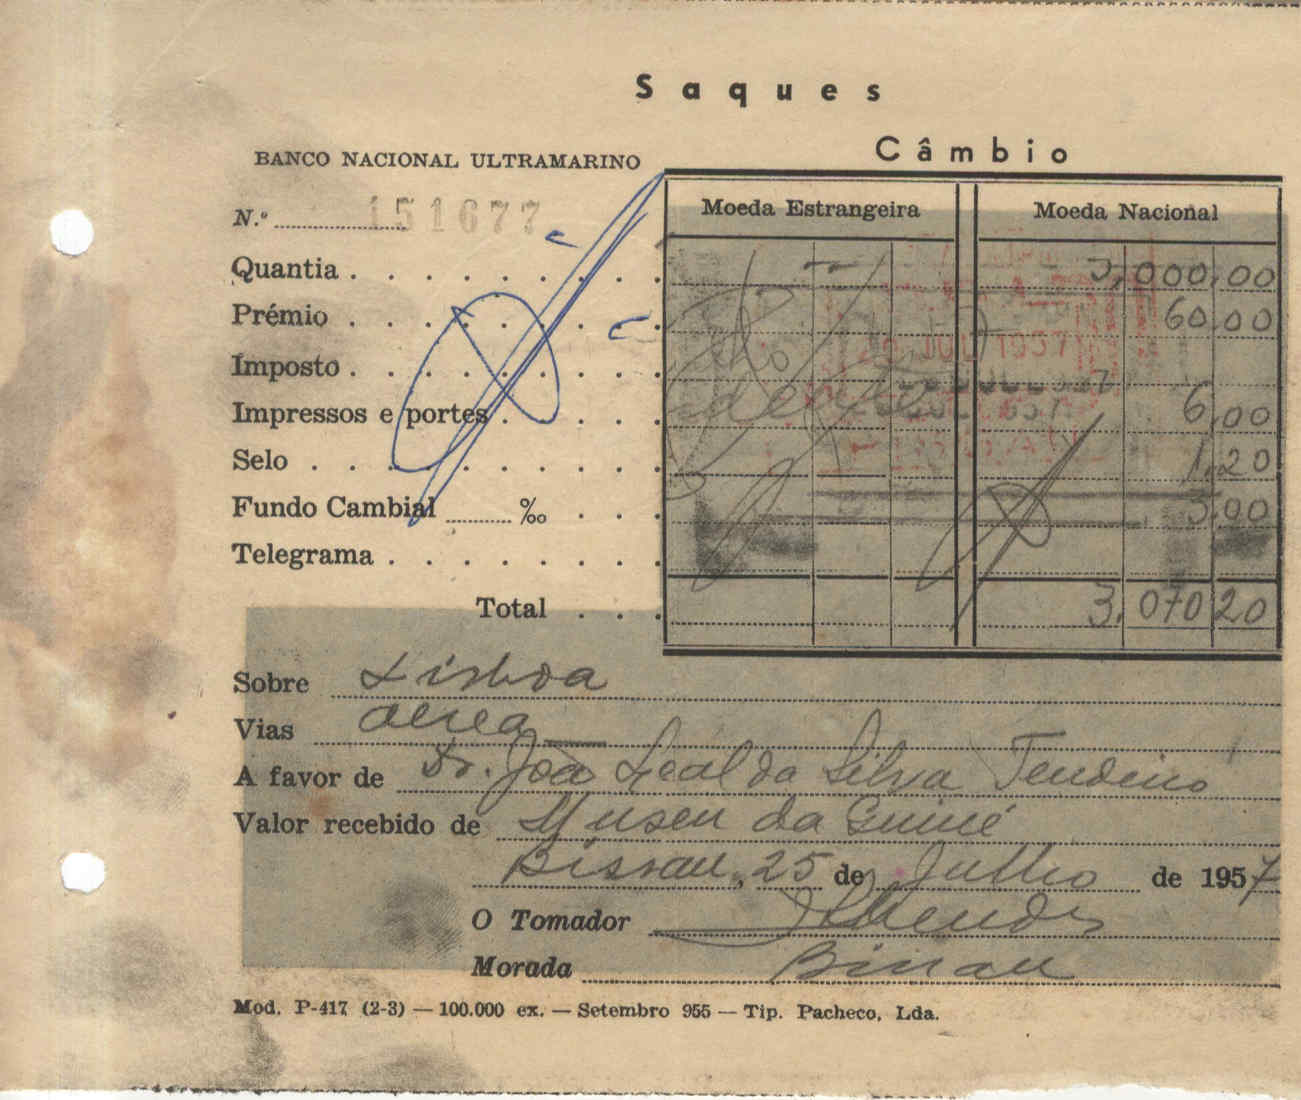 Saques
Câmbio
BANCO NACIONAL ULTRAMARINO
N.º 151677
Moeda Estrangeira Moeda Nacional
Quantia 3.000,00
Prémio 60,00
Imposto
Impressos e portes 6,00
Selo 1,20
Fundo Cambial ‰ 3,00
Telegrama
Total 3.070,20
Sobre Lisboa
Vias aerea
A favor de Dr. João Leal da Silva Tendeiro
Valor recebido de Museu da Guiné
Bissau, 25 de Julho de 1957
O Tomador
Morada Bissau
Mod. P-417 (2-3) — 100.000 ex. — Setembro 955 — Tip. Pacheco, Lda.